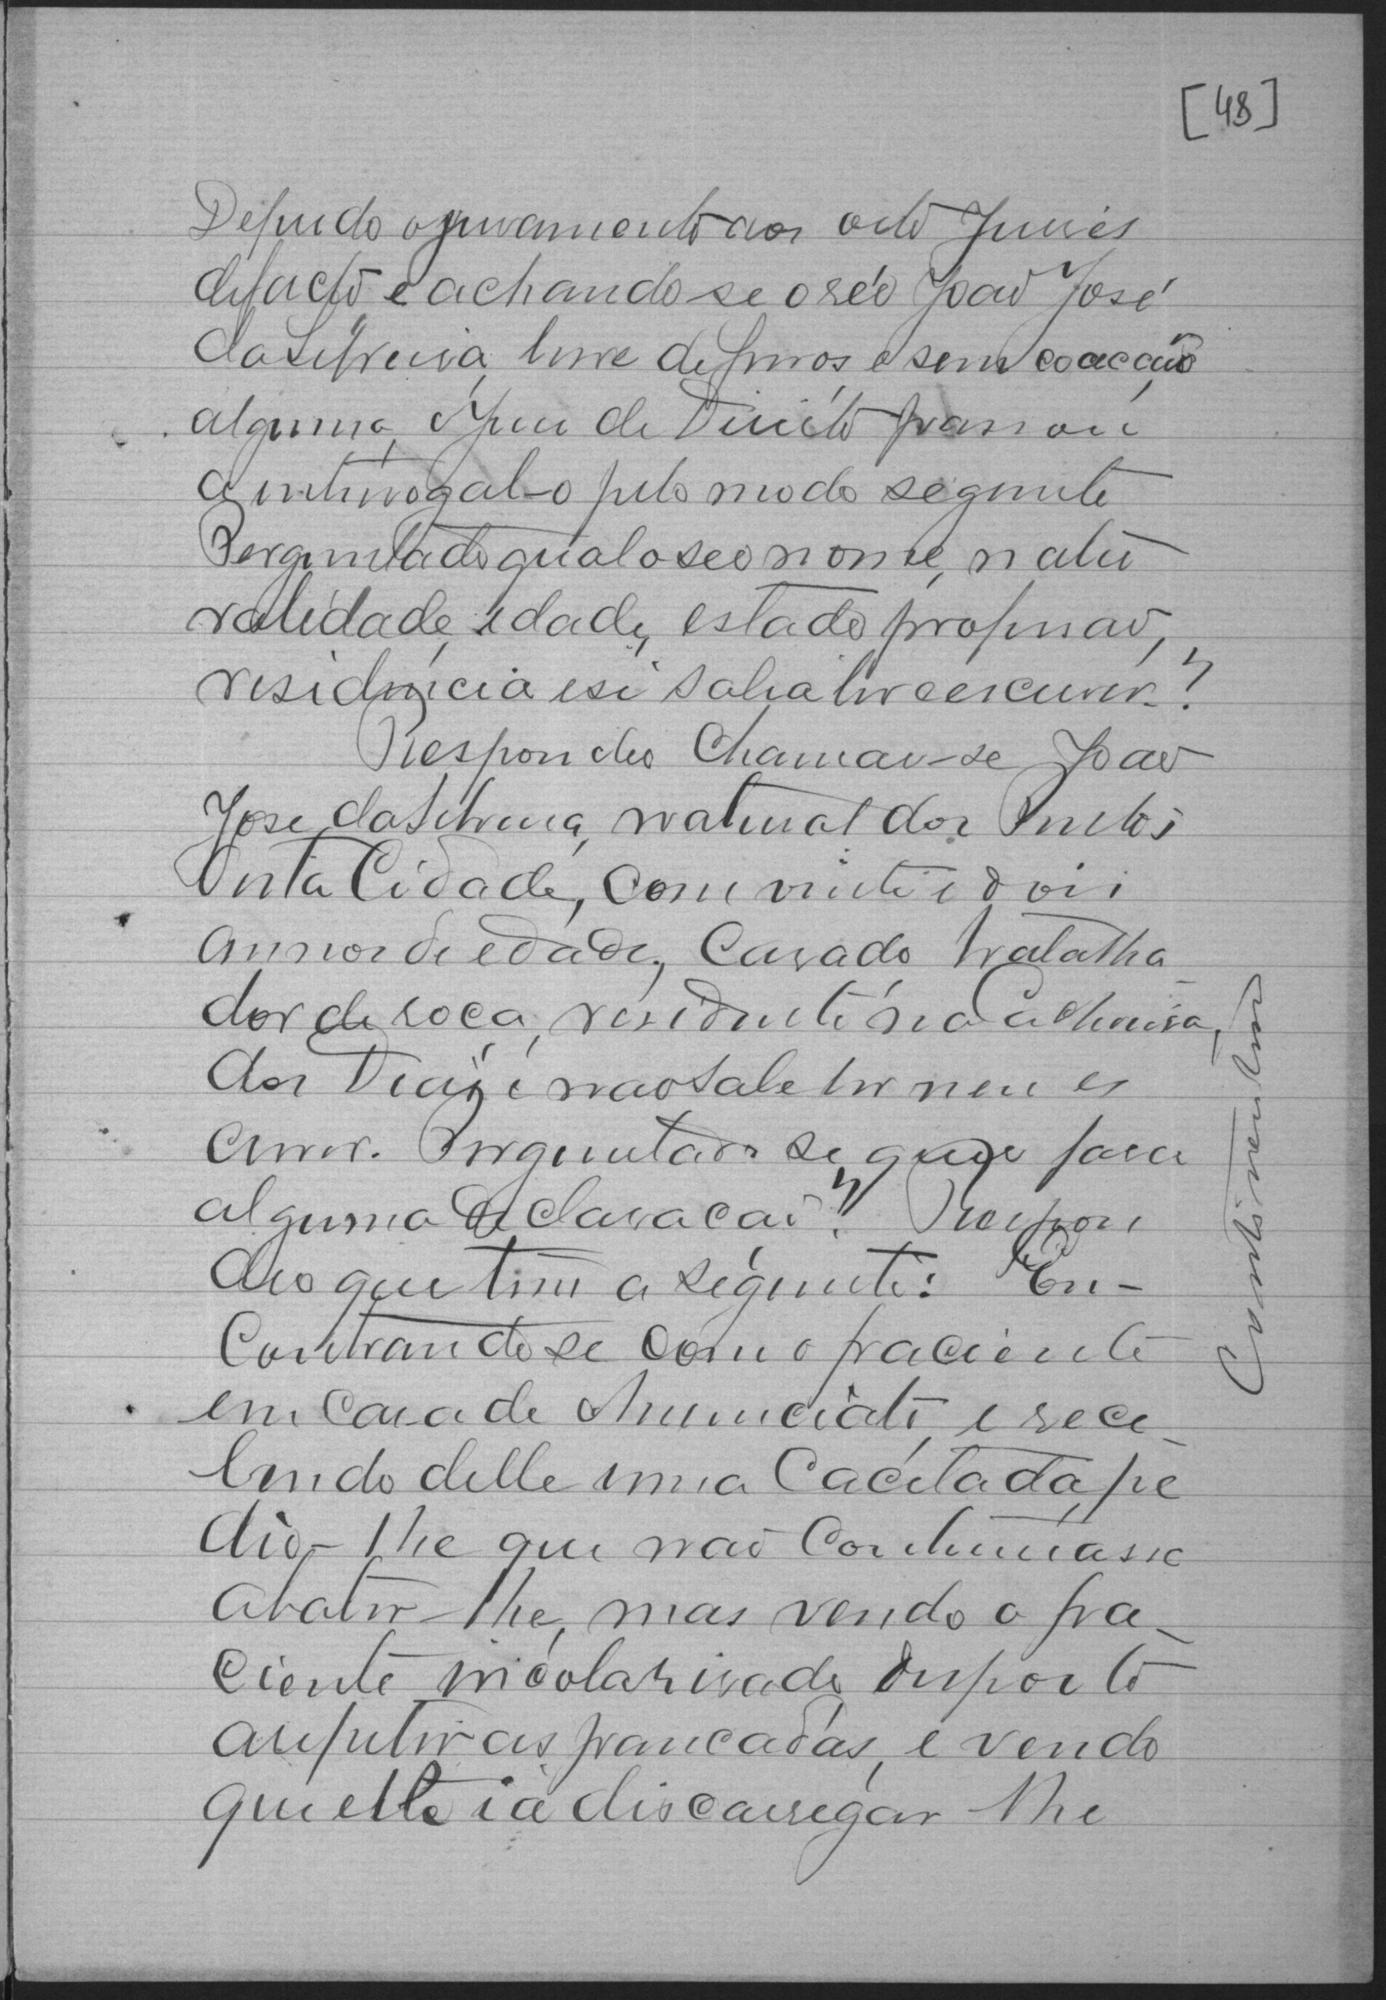 [48]
Deferido o juramento aos oito Juizes
de facto e achando-se o réo João José
da Silveira, livre de ferros e sem coacção
alguma, o Juiz de Direito passou
a interrogal-o pelo modo seguinte
Perguntado qual o seo nome, natu
ralidade, edade, estado profissão,
residencia e si sabia ler e escrever?
Respondeo Chamar-se João
José da Silveira, natural dos
desta Cidade, com vinte e dois
annos de edade, Casado trabalha
dor de roça, residente na Cachoeira
dos e não sabe ler nem es
crever. Perguntado se quer fazer
alguma declaração? Respon
deo que tem a seguinte: En-
Contrando se com o paciente
em casa de Annunciato, e rece
bendo delle uma Cacetada, pe
dio-lhe que não Continuasse
a bater-lhe, mas vendo o pa-
ciente encolarisado disposto
a repetir as pancadas, e vendo
que elle ia discarregar lhe